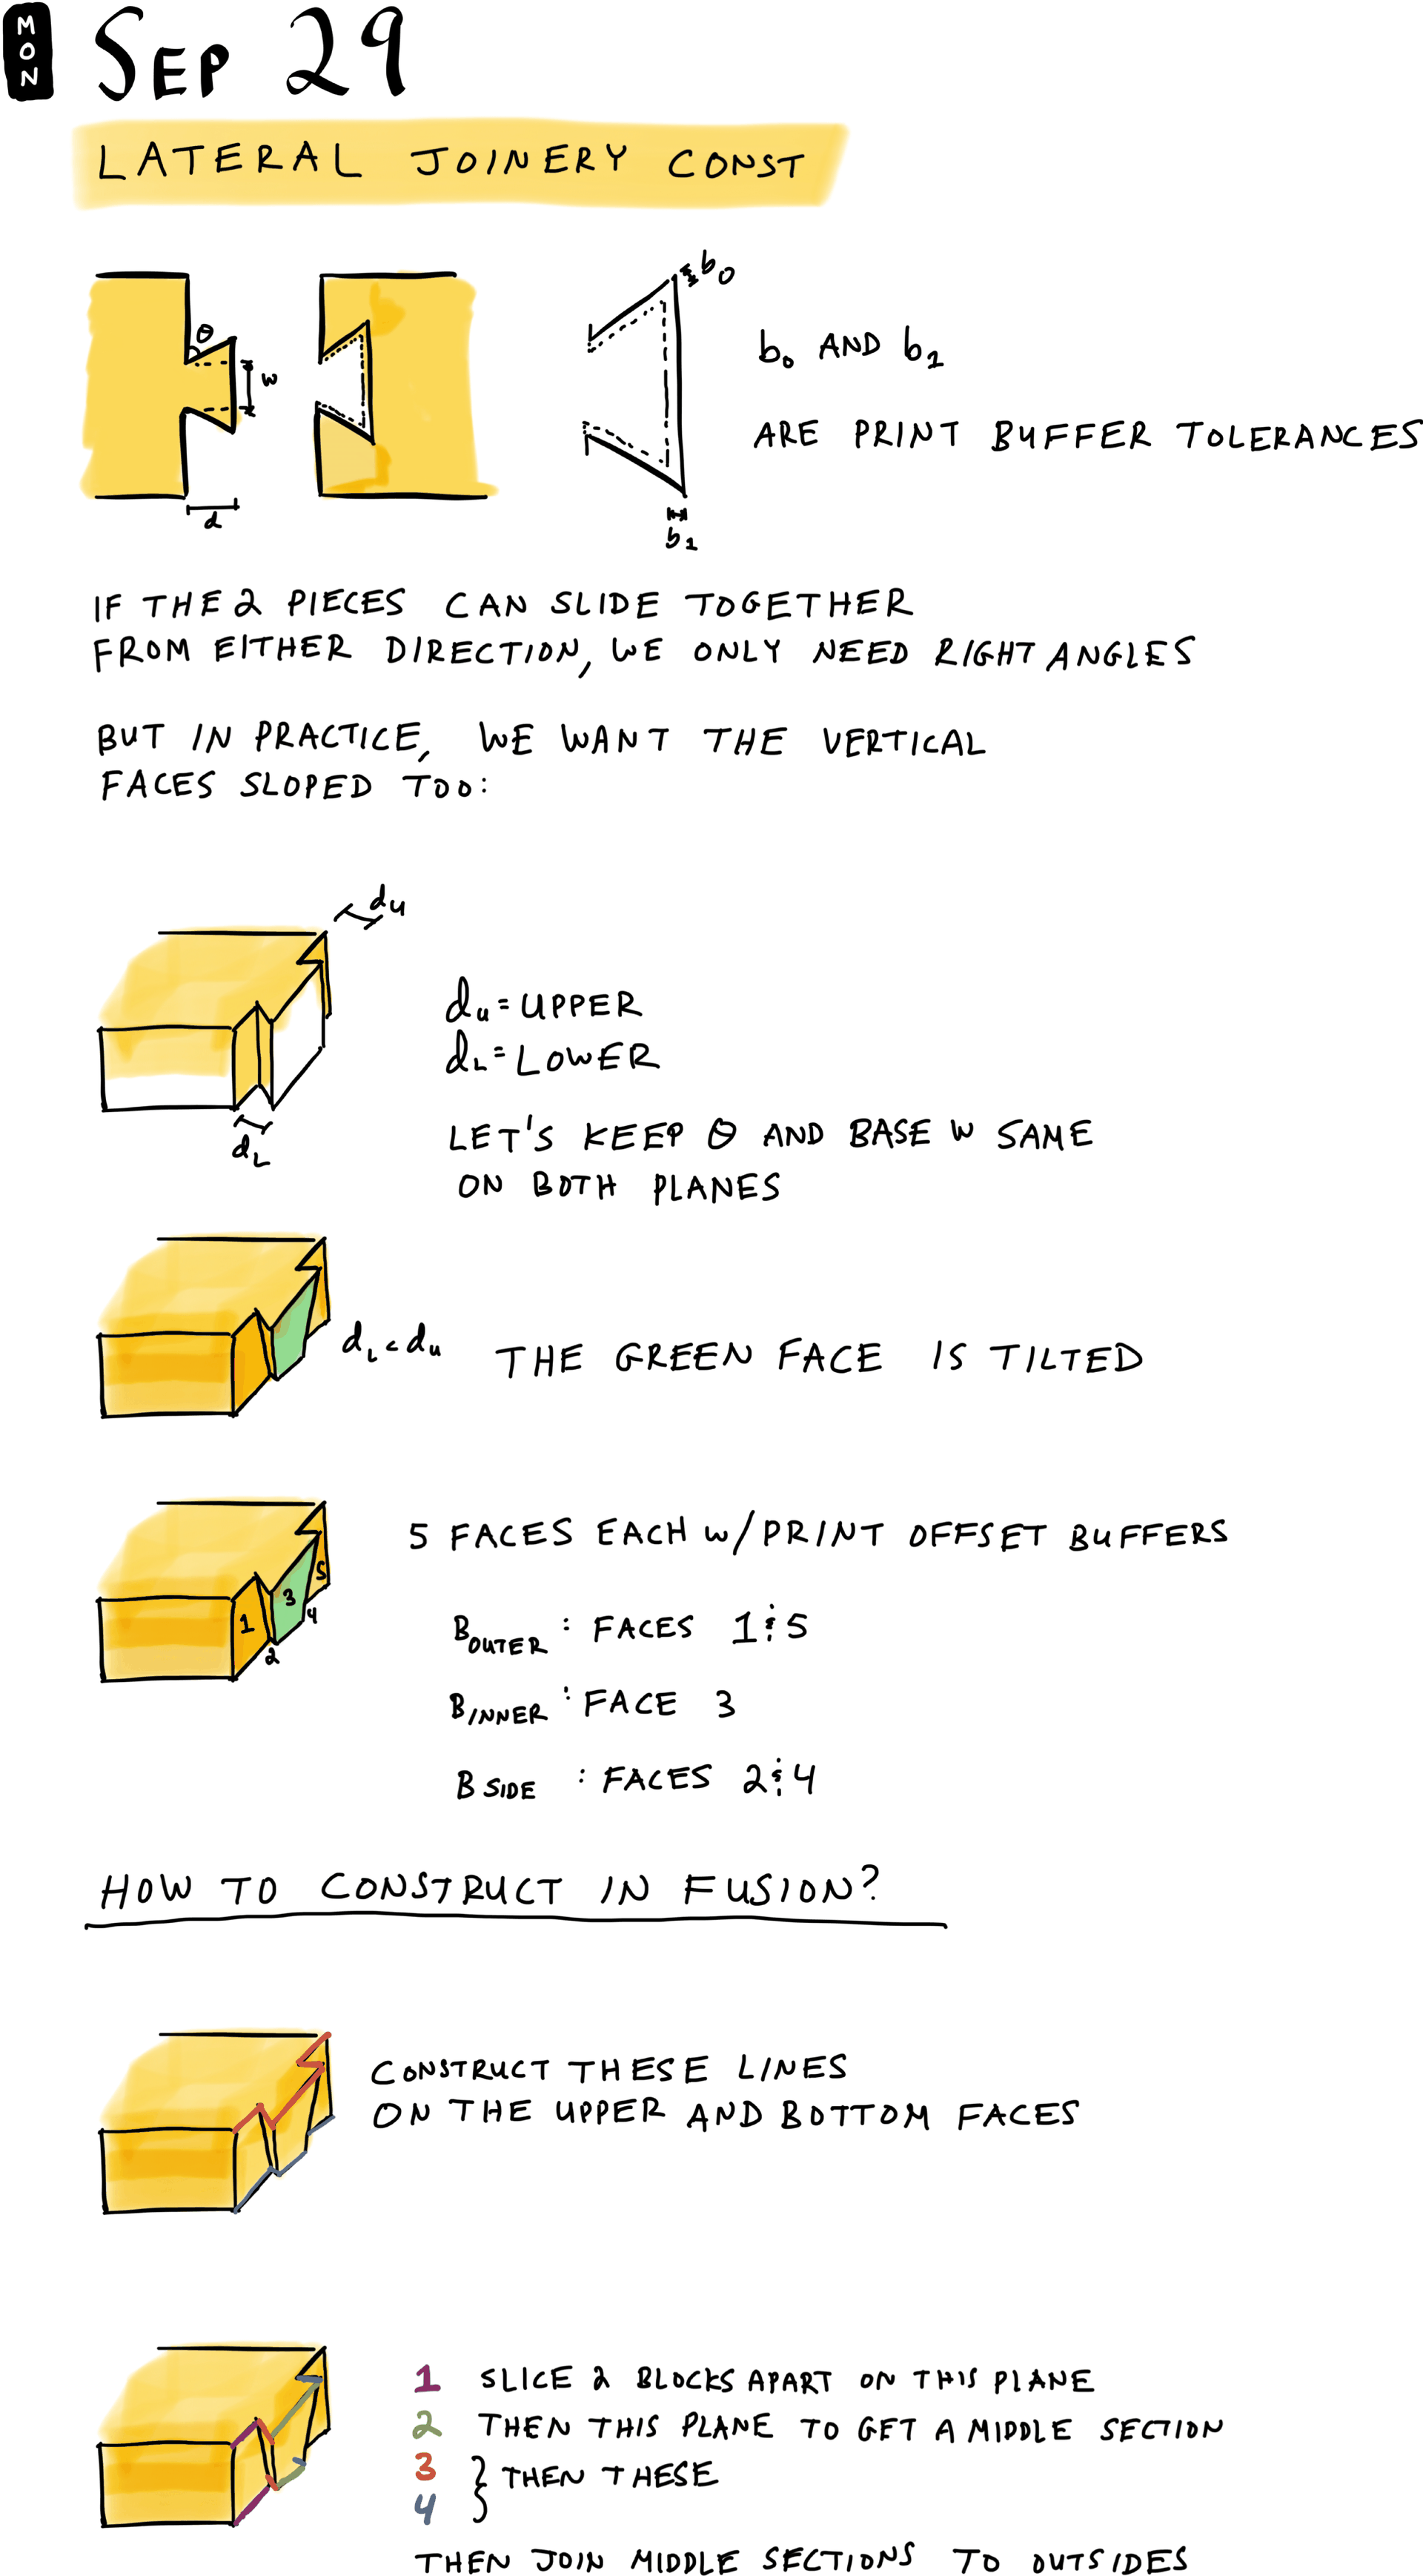 MON
SEP 29
LATERAL JOINERY CONST
θ
w
d
b0
b1
b0 AND b1
ARE PRINT BUFFER TOLERANCES
IF THE 2 PIECES CAN SLIDE TOGETHER
FROM EITHER DIRECTION, WE ONLY NEED RIGHT ANGLES
BUT IN PRACTICE, WE WANT THE VERTICAL
FACES SLOPED TOO:
du
dL
du = UPPER
dL = LOWER
LET'S KEEP θ AND BASE W SAME
ON BOTH PLANES
dL < du
THE GREEN FACE IS TILTED
1
2
3
4
5
5 FACES EACH w/ PRINT OFFSET BUFFERS
BOUTER : FACES 1 & 5
BINNER : FACE 3
BSIDE : FACES 2 & 4
HOW TO CONSTRUCT IN FUSION?
CONSTRUCT THESE LINES
ON THE UPPER AND BOTTOM FACES
1 SLICE 2 BLOCKS APART ON THIS PLANE
2 THEN THIS PLANE TO GET A MIDDLE SECTION
3 } THEN THESE
4
THEN JOIN MIDDLE SECTIONS TO OUTSIDES